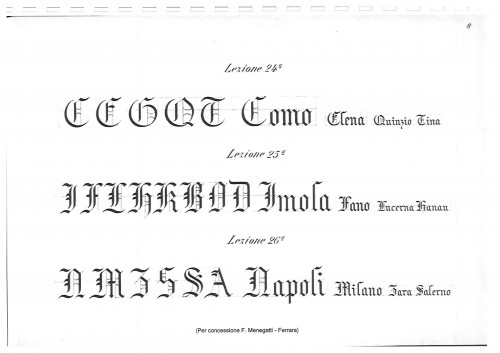 Lezione 24ª
C E G Q T Como Elena Quinzio Tina
Lezione 25ª
I F L H K B N D Imola Fano Lucerna Hanau
Lezione 26ª
N M Z S S A Napoli Milano Zara Salerno
(Per concessione F. Menegatti - Ferrara)